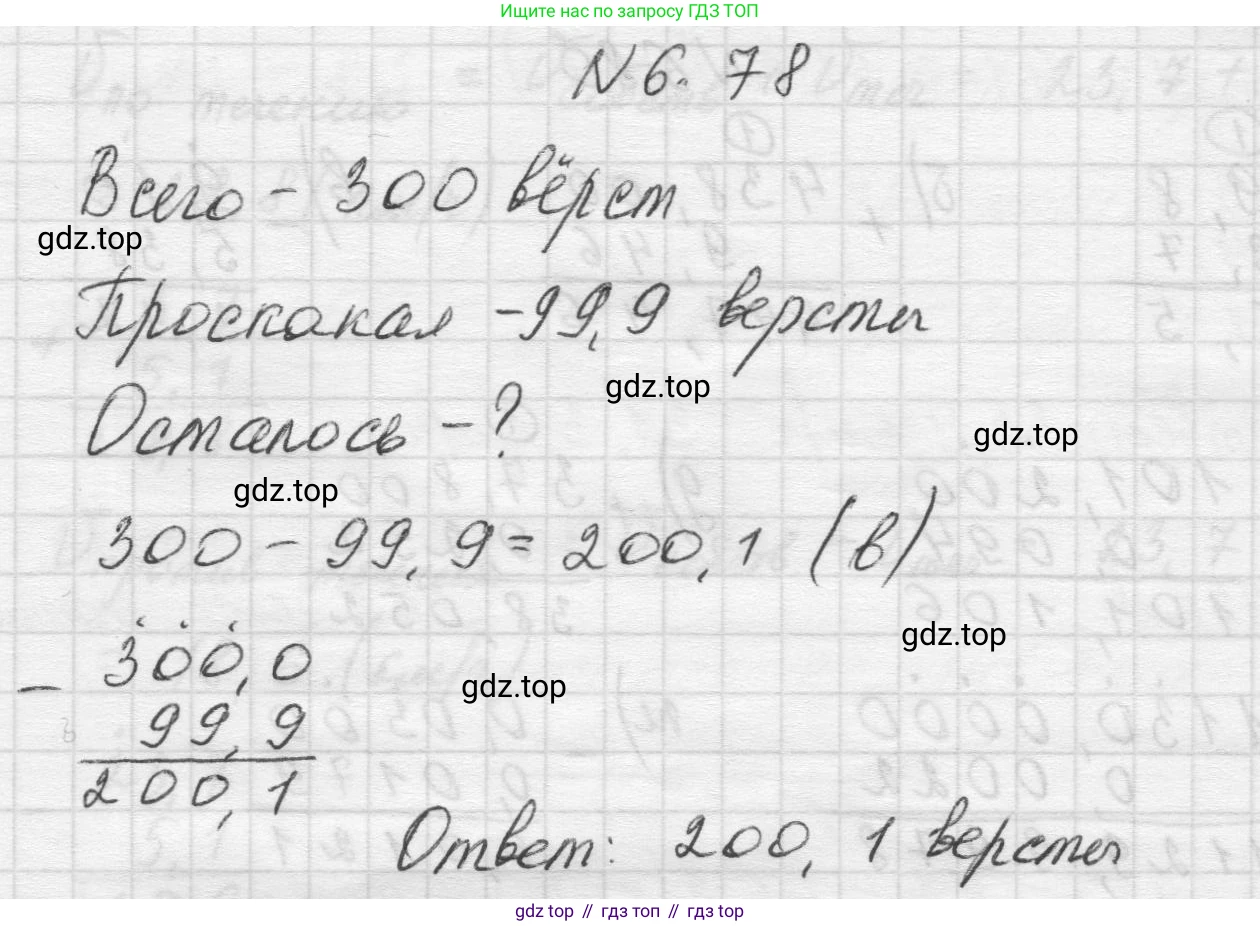 Ищите нас по запросу ГДЗ ТОП
N 6. 78
Всего - 300 вёрст
gdz.top
Проскакал - 99,9 версты
gdz.top
Осталось - ?
gdz.top
gdz.top
300 - 99,9 = 200,1 (в)
gdz.top
300,0
gdz.top
- 99,9
200,1
Ответ: 200,1 версты
gdz.top // гдз топ // gdz top